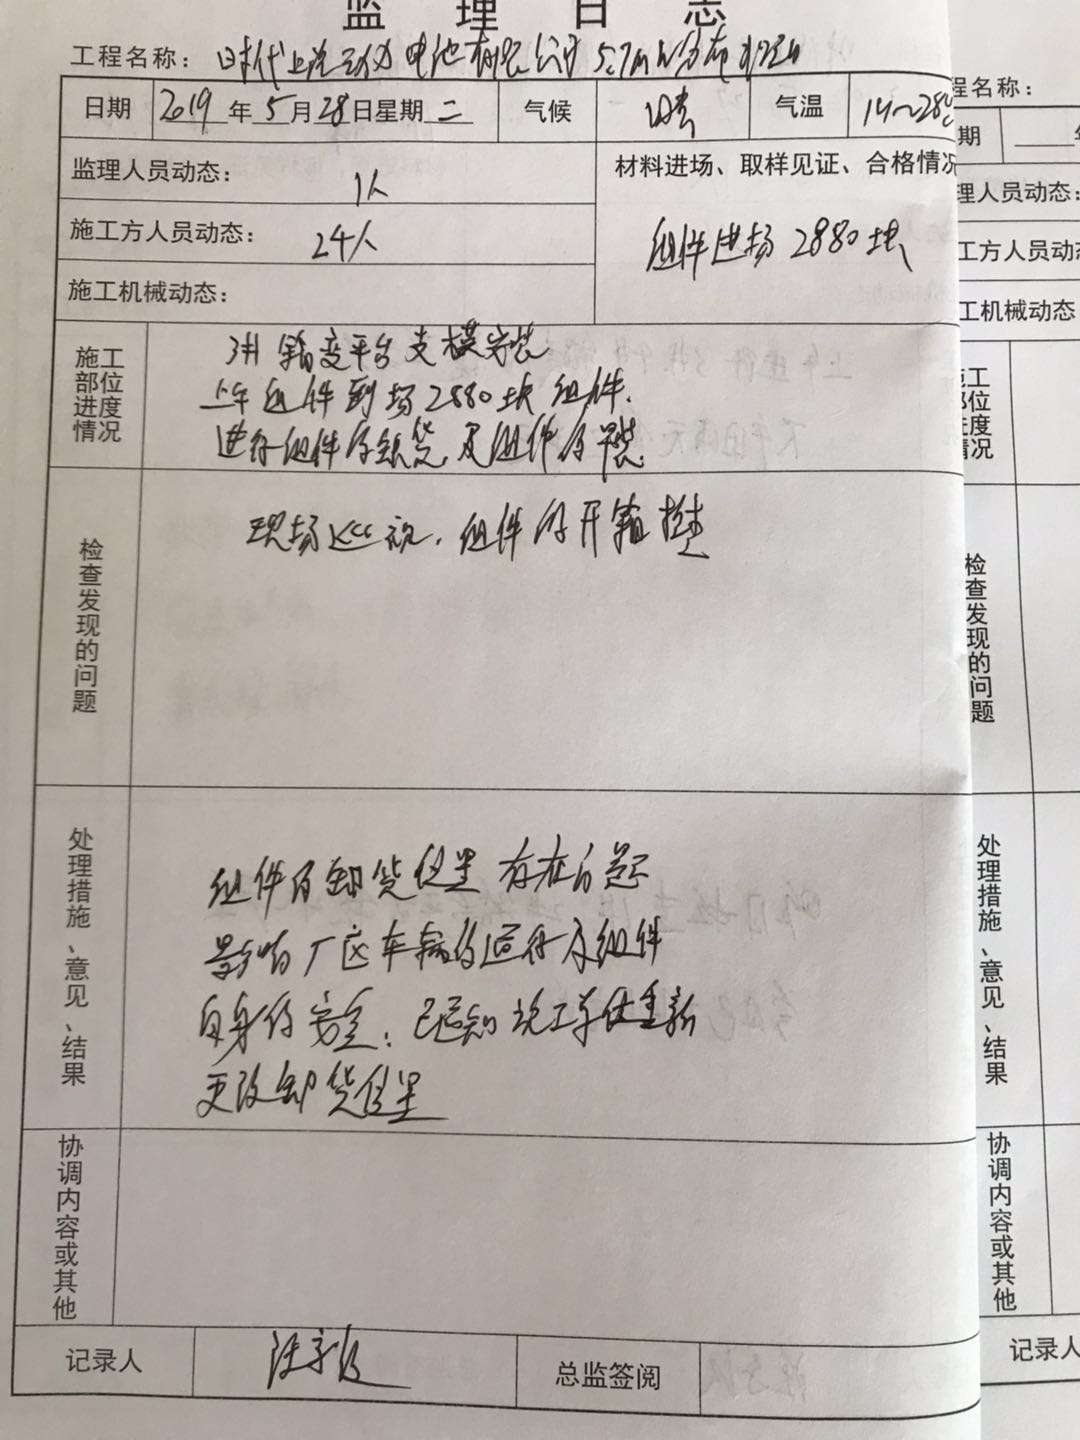 监理日志
工程名称：时代上汽动力电池有限公司5.7MW分布式项目
日期 2019年5月28日星期二 气候 晴 气温 14~28℃
监理人员动态： 1人 材料进场、取样见证、合格情况
施工方人员动态： 24人 组件进场2880块
施工机械动态：
施工部位进度情况
3# 箱变平台支模安装
上午组件到场2880块组件.
进行组件的卸货及组件的安装
检查发现的问题
现场巡视，组件的开箱检查
处理措施、意见、结果
组件的卸货位置存在问题
影响厂区车辆的运行及组件
自身的安全，已通知施工单位重新
更改卸货位置
协调内容或其他
记录人 总监签阅
程名称：
期
理人员动态：
工方人员动态
工机械动态
施工部位进度情况
检查发现的问题
处理措施、意见、结果
协调内容或其他
记录人